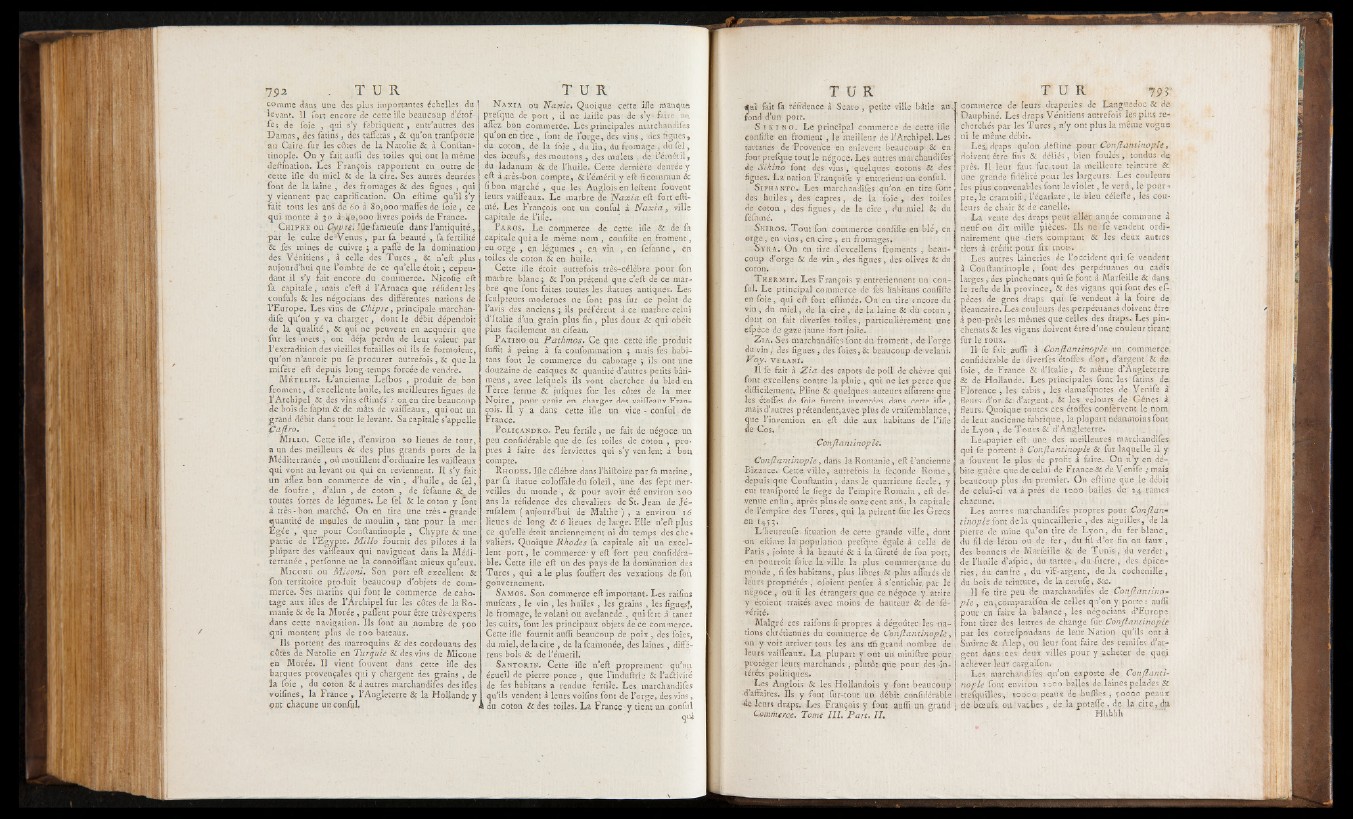 792 . T U R
comme dans une des plus importantes échelles du
levant. Il sort encore de cette isle beaucoup d'étof-
fes de soie , qui s'y fabriquent, entr'autres des
Damas, des satins , des taffetas , & qu'on transporte
au Caire sur les côtes de la Natolie & à Constan-
tinople. On y fait aussi des toiles qui ont la même
destination. Les François rapportent en outre de
cette isle du miel & de la cire. Ses autres denrées
sont de la laine , des fromages & des figues , qui
y viennent par caprification. On estime qu'il s'y
fait tous les ans de 60 à 80,000 masses de soie , ce
qui monte à 30 à 40,000 livres poids de France.
CHIPRE ou Cypre. Isle fameuse dans l'antiquité,
par le culte de Venus , par sa beauté , sa fertilité
& ses mines de cuivre ; a passé de la domination
des Vénitiens , à celle des Turcs , & n'est plus
aujourd'hui que l'ombre de ce qu'elle étoit ; cepen-
dant il s'y fait encore du commerce. Nicosie est
sa capitale, mais c'est à l'Arnaca que résident les
consuls & les négocians des différentes nations de
l'Europe. Les vins de Chipre , principale marchan-
dise qu'on y va charger , dont le débit dépendoit
de la qualité , & qui ne peuvent en acquérir que
sur les mers , ont déja perdu de leur valeur par
l'extradition des vieilles futailles où ils se formoient,
qu'on n'auroit pu se procurer autrefois , & que la
misère est depuis long-temps forcée de vendre.
MÉTELIN. L'ancienne Lesbos , produit de bon
froment, d'excellente huile, les meilleures figues de
l'Archipel & des vins estimés : on en tire beaucoup
de bois de sapin & de mâts de vaisseaux, qui ont un
grand débit dans tout le levant. Sa capitale s'appelle
Castro.
MILLO. Cette isle, d'environ 20 lieues de tour,
a un des meilleurs & des plus grands ports de la
Méditerranée , où mouillent d'ordinaire les vaisseaux
qui vont au levant ou qui en reviennent. Il s'y fait
un assez bon commerce de vin , d'huile, de sel,
de soufre , d'alun , de coton , de sésame & de
toutes sortes de légumes. Le sel & le coton y sont
à très-bon marché. On en tire une très-grande
quantité de meules de moulin , tant pour la mer
Égée , que pour Constantinople , Chypre & une
partie de l'Égypte. Millo fournit des pilotes à la
plûpart des vaisseaux qui naviguent dans la Médi-
terranée , personne ne la connoissant mieux qu'eux.
MICONE ou Miconi. Son port est excellent &
son territoire produit beaucoup d'objets de com-
merce. Ses marins qui font le commerce de cabo-
tage aux isles de l'Archipel sur les côtes de la Ro-
manie & de la Morée , passent pour être très-experts
dans cette navigation. Ils sont au nombre de 500
qui montent plus de 100 bateaux.
Ils portent des marroquins & des cordouans des
côtes de Natolie en Turquie & des vins de Micone
en Morée. Il vient souvent dans cette isle des
barques provençales qui y chargent des grains , de
la soie , du coton & d'autres marchandises des isles
voisines, la France , l'Angleterre & la Hollande y
ont chacune un consul.
T U R
NAXIA ou Naxie. Quoique cette isle manque
presque de port , il ne laisse pas de s'y faire un
assez bon commerce. Les principales marchandises
qu'on en tire , sont de l'orge, des vins, des figues,
du coton, de la soie , du lin, du fromage, du sel,
des bœufs, des moutons , des mulets , de l'émeril,
du ladanum & de l'huile. Cette dernière denrée y
est à très-bon compte, & l'émeril y est si commun &
si bon marché , que les Anglois en lestent souvent
leurs vaisseaux. Le marbre de Naxia est fort esti-
mé. Les François ont un consul à Naxia , ville
capitale de l'isle.
PAROS. Le commerce de cette isle & de sa
capitale qui a le même nom , consiste en froment,
en orge , en légumes , en vin , en sésame , en
toiles de coton & en huile.
Cette isle étoit autrefois très-célèbre pour son
marbre blanc ; & l'on prétend que c'est de ce mar-
bre que sont faites toutes les statues antiques. Les
sculpteurs modernes ne sont pas sur ce point de
l'avis des anciens ; ils préfèrent à ce marbre celui
d'Italie d'un grain plus fin , plus doux & qui obéit
plus facilement au ciseau.
PATINO ou Pathmos. Ce que cette isle produit
suffit à peine à sa consommation ; mais ses habi-
tans font le commerce du cabotage ; ils ont une
douzaine de caïques & quantité d'autres petits bâti-
mens , avec lesquels ils vont chercher du bled en
Terre ferme & jusques sur les côtes de la mer
Noire , pour venir en charger des vaisseaux Fran-
çois. Il y a dans cette isle un vice-consul de
France.
POLICANDRO. Peu fertile , ne fait de négoce un
peu considérable que de ses toiles de coton , pro-
pres à faire des serviettes qui s'y vendent à bon
compte.
RHODES. Isle célèbre dans l'histoire par sa marine,
par sa statue colossale du soleil , une des sept mer-
veilles du monde , & pour avoir été environ 200
ans la résidence des chevaliers de St. Jean de Jé-
rusalem ( aujourd'hui de Malthe ) , a environ 16
lieues de long & 6 lieues de large. Elle n'est plus
ce qu'elle étoit anciennement ni du temps des che-
valiers. Quoique Rhodes sa capitale ait un excel-
lent port, le commerce y est fort peu considéra-
ble. Cette isle est un des pays de la domination des
Turcs , qui a le plus souffert des vexations de son
gouvernement.
SAMOS. Son commerce est important. Les raisins
muscats , le vin , les huiles , les grains , les figues,
le fromage, le volani ou avelanède , qui sert à taner
les cuirs, sont les principaux objets de ce commerce.
Cette isle fournit aussi beaucoup de poix , des soies,
du miel, de la cire , de la scamonée, des laines , diffé-
rens bols & de l'émeril.
SANTORIN. Cette isle n'est proprement qu'un
écueil de pierre ponce , que l'industrie & l'activité
de ses habitans a rendue fertile. Les marchandises
qu'ils vendent à leurs voisins sont de l'orge, des vins,
du coton & des toiles. La France y tient un consul
qui
T U R
qui fait sa résidence à Scaro , petite ville bâtie au
fond d'un port.
SIKINO. Le principal commerce de cette isle
consiste en froment , le meilleur de l'Archipel. Les
tartanes de Provence en enlevent beaucoup & en
font presque tout le négoce. Les autres marchandises
de Sikino sont des vins , quelques cotons & des
figues. La nation Françoise y entretient un consul.
SIPHANTO. Les marchandises qu'on en tire sont
des huiles , des capres , de la soie , des toiles
de coton , des figues , de la cire , du miel & du
sésame.
SKIROS. Tout son commerce consiste en blé, en
orge , en vins, en cire , en fromages.
SYRA. On en tire d'excellens froments , beau-
coup d'orge & de vin , des figues , des olives & du
coton.
THERMIE. Les François y entretiennent un con-
sul. Le principal commerce de ses habitans consiste
en soie, qui est fort estimée. On en tire encore du
vin , du miel, de la cire , de la laine & du coton ,
dont on fait diverses toiles, particulièrement une
espèce de gaze jaune fort jolie.
ZIA. Ses marchandises sont du froment , de l'orge
du vin , des figues , des soies, & beaucoup de velani.
Voy. VELANI.
Il se fait à Zia des capots de poil de chèvre qui
sont excellens contre la pluie , qui ne les perce que
difficilement. Pline & quelques auteurs assurent que
les étoffes de soie furent inventées dans cette isle ,
mais d'autres prétendent, avec plus de vraisemblance,
que l'invention en est dûe aux habitans de l'isle
de Cos.
Constantinople.
Constantinople , dans la Romanie, est l'ancienne
Bizance. Cette ville, autrefois la seconde Rome,
depuis que Constantin , dans le quatrieme siecle , y
eut transporté le siege de l'empire Romain , est de-
venue enfin, après plus de onze cent ans , la capitale
de l'empire des Turcs , qui la prirent sur les Grecs
en 1453.
L'heureuse situation de cette grande ville , dont
on estime la population presque égale à celle de
Paris , jointe à la beauté & à la sûreté de son port,
en pourroit faire la ville la plus commerçante du
monde , si ses habitans, plus libres & plus assurés de
leurs propriétés , osoient penser à s'enrichir par le
négoce , où si les étrangers que ce négoce y attire
y étoient traités avec moins de hauteur & de sé-
vérité.
Malgré ces raisons si propres à dégoûter les na-
tions chrétiennes du commerce de Constantinople,
on y voit arriver tous les ans un grand nombre de
leurs vaisseaux. La plupart y ont un ministre pour
protéger leurs marchands , plutôt que pour des in-
térêts politiques.
Les Anglois & les Hollandois y font beaucoup
d'affaires. Ils y font sur-tout un débit considérable
de leurs draps. Les François y font aussi un grand
Commerce. Tome III. Part. II.
T U R 793
commerce de leurs draperies de Languedoc & de
Dauphiné. Les draps Vénitiens autrefois les plus re-
cherchés par les Turcs , n'y ont plus la même vogue
ni le même débit.
Les draps qu'on destine pour Constantinople,
doivent être fins & déliés , bien foulés , tondus de
près. Il leur faut sur-tout la meilleure teinture &
une grande fidélité pour les largeurs. Les couleurs
les plus convenables sont le violet , le verd, le pour-
pre, le cramoisi, l'écarlate , le bleu céleste , les cou-
leurs de chair & de canelle.
La vente des draps peut aller année commune à
neuf ou dix mille pièces. Ils ne se vendent ordi-
nairement que tiers comptant & les deux autres
tiers à crédit pour six mois.
Les autres laineries de l'occident qui se vendent
à Constantinople , sont des perpétuanes ou cadis
larges , des pinchenats qui se font à Marseille & dans
le reste de la province, & des vigans qui sont des es-
pèces de gros draps qui se vendent à la foire de
Beaucaire. Les couleurs des perpétuanes doivent être
à peu-près les mêmes que celles des draps. Les pin-
chenats & les vigans doivent être d'une couleur tirant
sur le roux.
Il se fait aussi à Constantinople un commerce
considérable de diverses étoffes d'or, d'argent & de
soie , de France & d'Italie , & même d'Angleterre
& de Hollande. Les principales sont les satins de
Florence , les tabis , les damasquetes de Venise à
fleurs d'or & d'argent , & les velours de Gênes à
fleurs. Quoique toutes ces étoffes conservent le nom
de leur ancienne fabrique , la plupart néanmoins sont
de Lyon , de Tours & d'Angleterre.
Le papier est une des meilleures marchandises
qui se portent à Constantinople & sur laquelle il y
a souvent le plus de profit à faire. On n'y en dé-
bite guère que de celui de France & de Venise ; mais
beaucoup plus du premier. On estime que le débit
de celui-ci va à près de 1000 balles de 24 rames
chacune.
Les autres marchandises propres pour Constan-
tinople sont de la quincaillerie , des aiguilles, de la
pierre de mine qu'on tire de Lyon, du fer blanc,
du fil de léton ou de fer, du fil d'or fin ou faux ,
des bonnets de Marseille & de Tunis, du verdet ,
de l'huile d'aspic, du tartre , du sucre , des épice-
ries , du camfre , du vif-argent, de la cochenille,
du bois de teinture, de la ceruse, &c.
Il se tire peu de marchandises de Constantino-
ple , en comparaison de celles qu'on y porte : aussi
pour en faire la balance , les négocians d'Europe
font tirer des lettres de change sur Constantinople
par les correspondans de leur Nation qu'ils ont à
Smirne & Alep , ou leur font faire des remises d'ar-
gent dans ces deux villes pour y acheter de quoi
achever leur cargaison.
Les marchandises qu'on exporte de Constanti-
nople sont environ 1000 balles de laines pelades &
tresquilles , 10000 peaux de buffles , 50000 peaux
de bœufs ou vaches , de la potasse , de la cire , du
Hhhhh